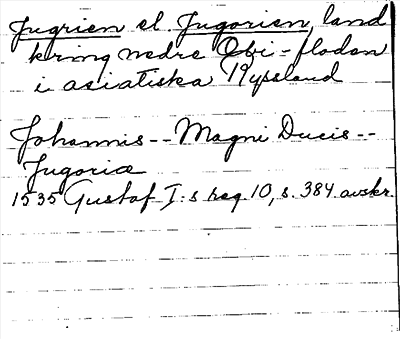 Jugrien el. Jugorien, land
kring nedre Obi-floden
i asiatiska Ryssland
Johannis -- Magni Ducis --
Jugoria
1535 Gustaf I:s reg. 10, s. 384 avskr.